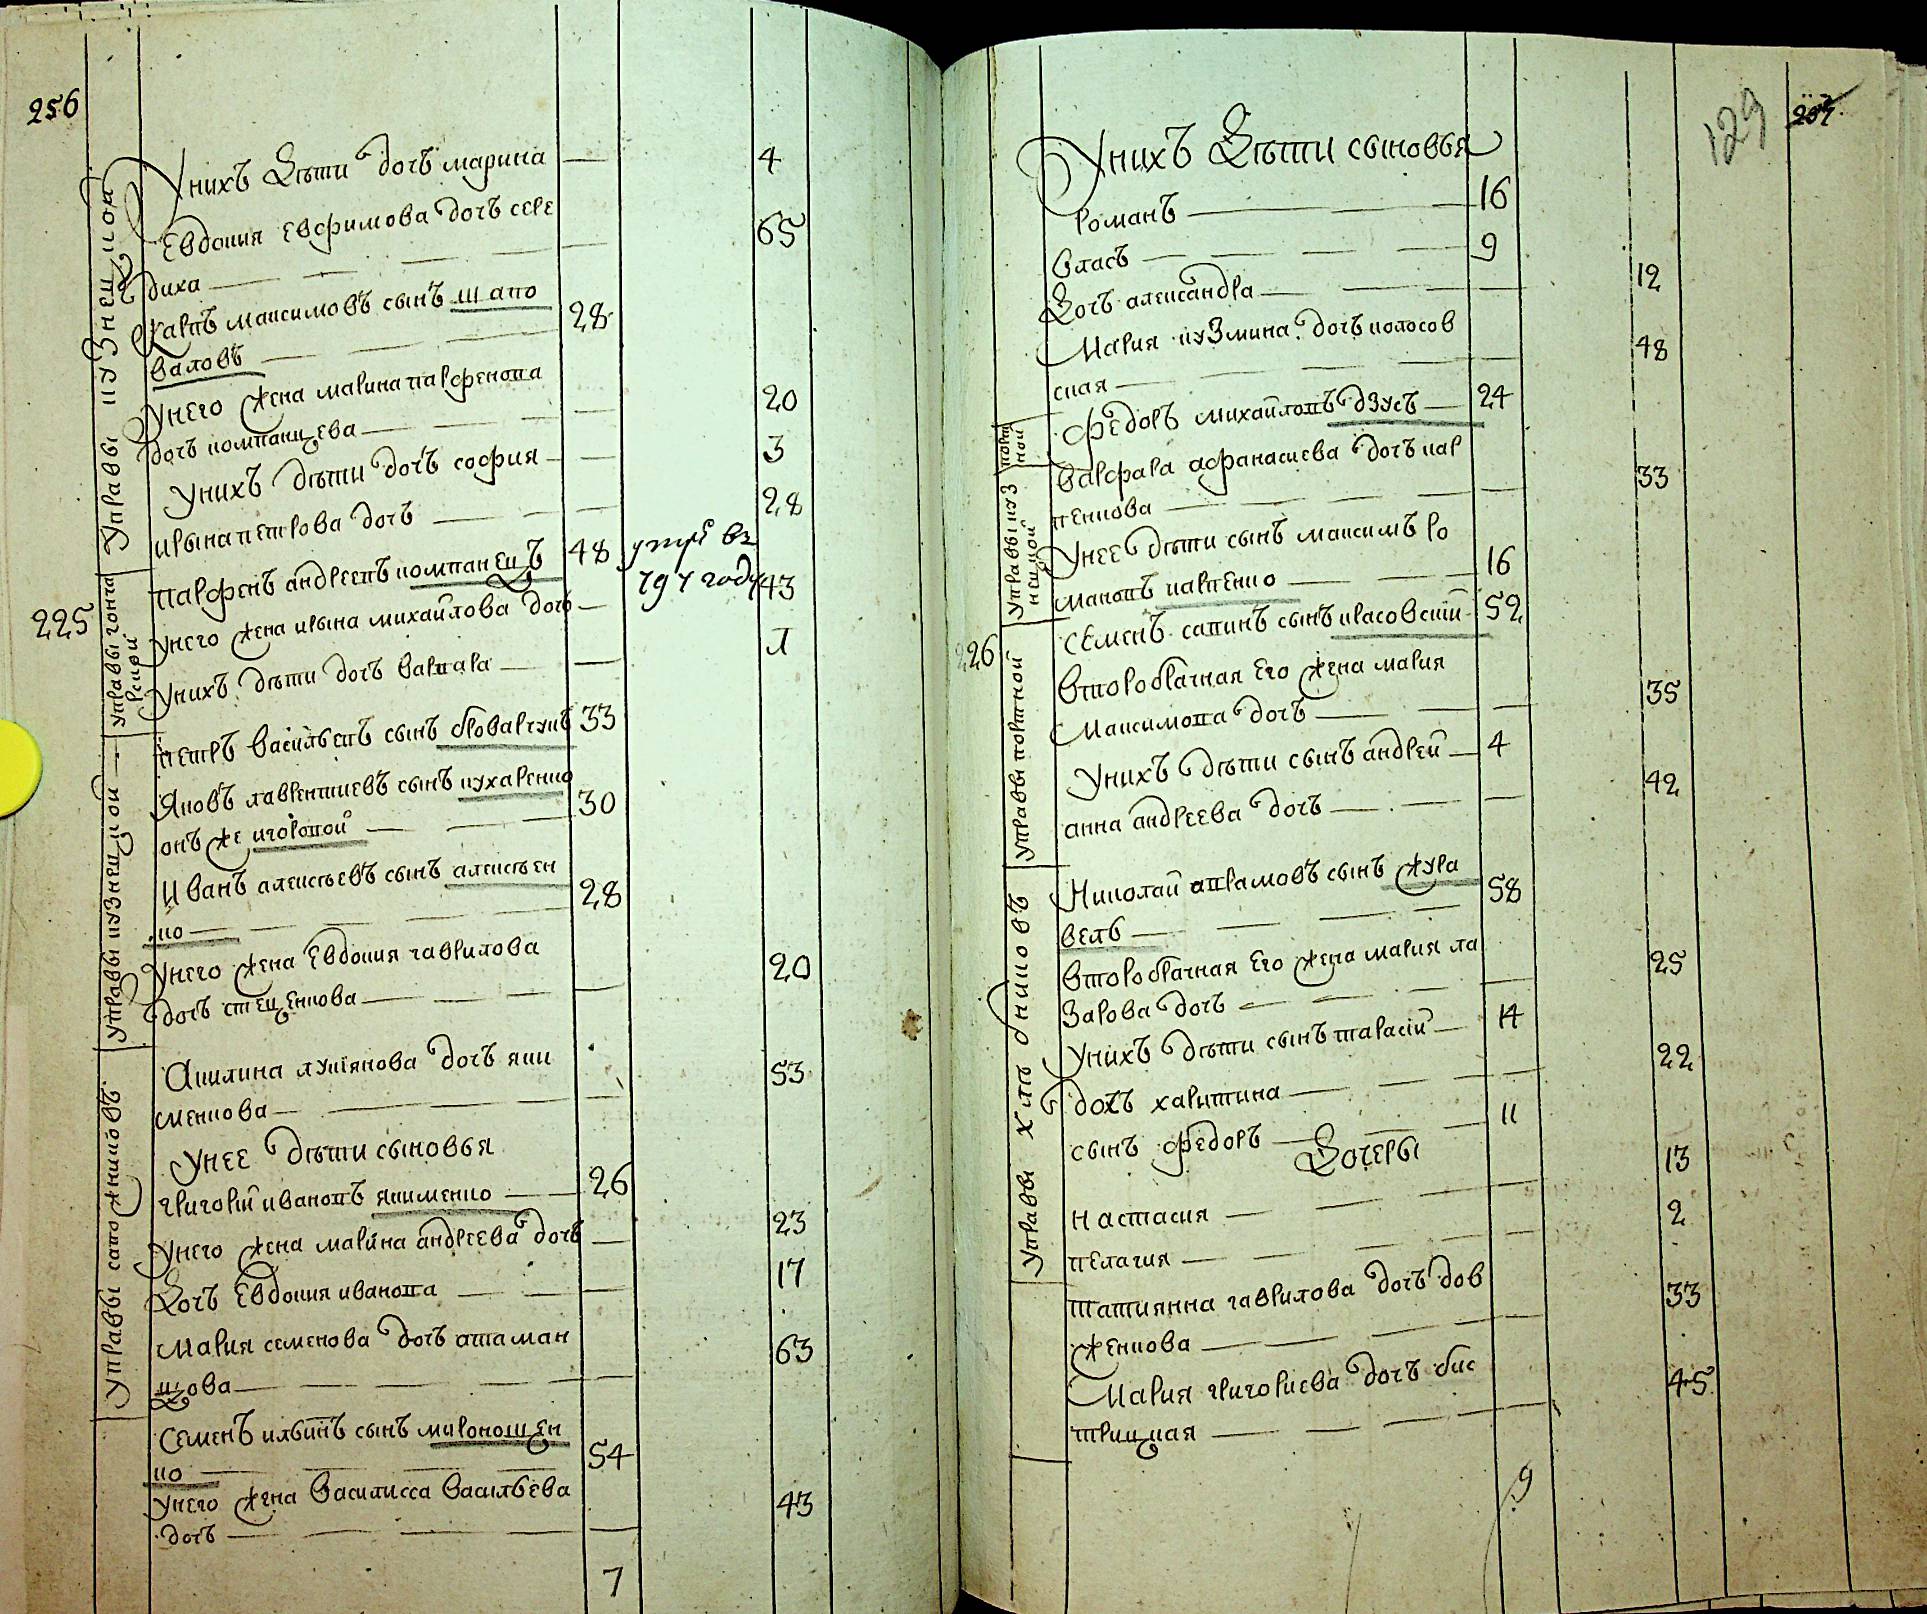 256
Управы кузнецкой
У нихъ дѣти дочь марина — 4
Евдокия Евфимова дочь сере 65
диха —
Карпъ максимовъ сынъ шапо 28
валовъ —
У него жена марина парфенова 20
дочь компанцева —
У нихъ дѣти дочь софия — 3
Ирына петрова дочь — 28
225
Управы гончарской
Парфенъ андреевъ компанецъ 48 умре въ
794 году
У него жена ирына михайлова дочь — 43
У нихъ дѣти дочь варвара — Л
Управы кузнецкой —
Петръ васильевъ сынъ броварчукъ 33
Яковъ лаврентиевъ сынъ кухаренко
онъ же — 30
Иванъ алексѣевъ сынъ алексѣен 28
ко —
У него жена Евдокия гаврилова 20
дочь стеценкова —
Управы сапожниковъ
Акилина лукіянова дочь яки 53
менкова —
У нее дѣти сыновья
григорій ивановъ якименко — 26
У него жена марина андреева дочь — 23
Дочь Евдокия иванова — 17
Мария семенова дочь атаман 63
цова —
Семенъ ильинъ сынъ мирошничен 54
ко —
У него жена василисса васильева 43
дочь —
7
129 257
У нихъ дѣти сыновья
романъ — 16
власъ — 9
Дочь александра — 12
Мария кузмина дочь колосов 48
ская —
портной
Федоръ михайловъ дзусъ — 24
Управы кузнецкой
Варфара афанасиева дочь кар 33
пенкова —
У нее дѣти сынъ максимъ ро
мановъ карпенко — 16
226
Управы портной
Семенъ савинъ сынъ красовскій 52
второбрачная его жена мария 35
Максимова дочь —
У нихъ дѣти сынъ андрей — 4
анна андреева дочь — 42
Управы хлѣбниковъ
Николай аврамовъ сынъ жура 58
вель —
второбрачная его жена мария ла 25
зарова дочь —
У нихъ дѣти сынъ тарасій — 14
дочь харитина — 22
сынъ федоръ — 11
Дочеры
настасия — 13
пелагия — 2
татиянна гаврилова дочь дов 33
женкова —
Мария григориева дочь бис 45
трицкая —
9